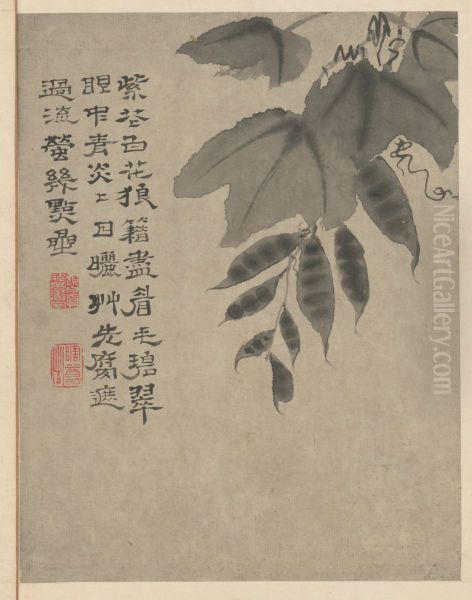 紫花白花狼籍盡眉毛碧翠
眼中青炎〻日曬艸先腐遮
過流螢幾點星
NiceArtGallery.com